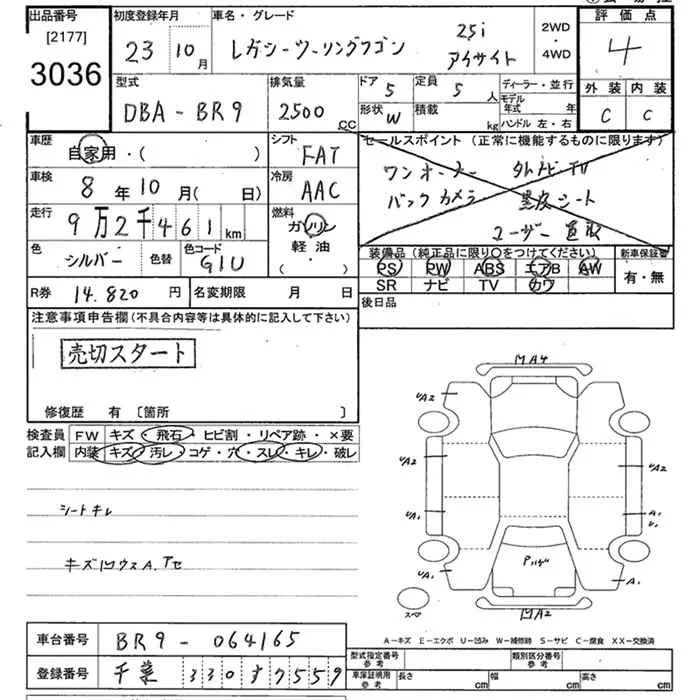 出品番号 初度登録年月 車名・グレード 評価点
[2177] 23 10月 レガシーツーリングワゴン 25i アイサイト 2WD・4WD 4
3036
型式 排気量 ドア 5 定員 5人 ディーラー・並行 外装 内装
DBA-BR9 2500cc 形状 W 積載 kg モデル年式 年 C C
ハンドル 左・右
車歴 シフト セールスポイント (正常に機能するものに限ります)
自家用・( ) FAT ワンオーナー
車検 冷房 バックカメラ 黒皮シート
8年10月( 日) AAC ユーザー買取
走行 燃料
9万2千461km ガソリン
軽油・( )
色 シルバー 色替 色コード G1U
装備品 (純正品に限り○をつけてください) 新車保証書
PS PW ABS エアB AW 有・無
SR ナビ TV カワ
R券 14.820円 名変期限 月 日 後日品
注意事項申告欄(不具合内容等は具体的に記入して下さい)
売切スタート
修復歴 有 〔箇所 〕
検査員 FW キズ・飛石・ヒビ割・リペア跡・×要
記入欄 内装 キズ・汚レ・コゲ・穴・スレ・キレ・破レ
シートキレ
MA4
UA2
UA2 UA2
UA1 A1
UA1 A1
MA2
スペア
A-キズ E-エクボ U-凹み W-補修跡 S-サビ C-腐食 XX-交換済
車台番号 BR9-064165
登録番号 千葉 330 す 7559
型式指定番号 参考 類別区分番号 参考
車庫証明用 参考 長さ cm 幅 cm 高さ cm